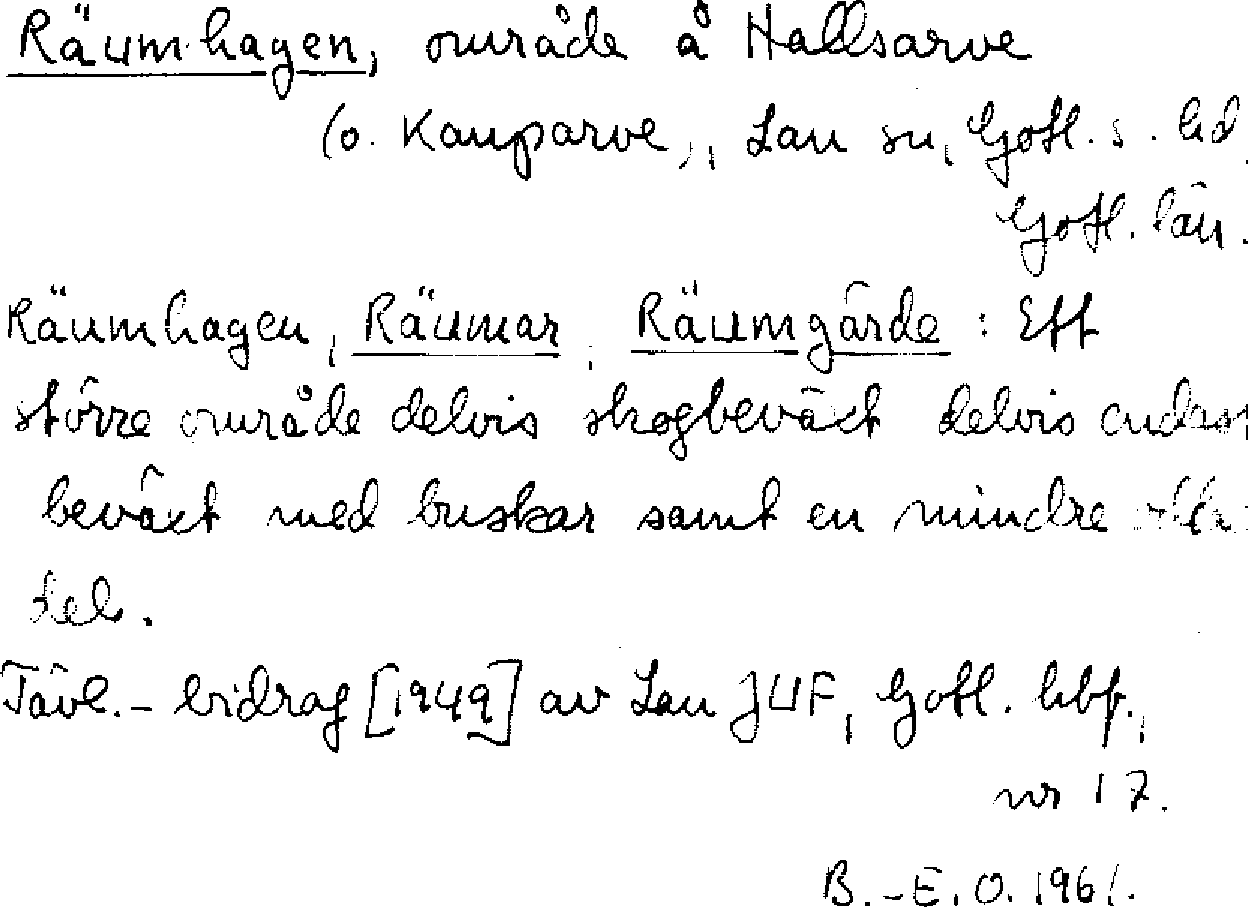 Räumhagen, område å Hallsarve
(o. Kauparve), Lau sn, Gotl. s. hd,
Gotl. län.
Räumhagen, Räumar, Räumgärde : Ett
större område delvis skogbeväxt delvis endast
beväxt med buskar samt en mindre
del.
Tävl.-bidrag [1949] av Lau JUF, Gotl. hbf.,
nr 17.
B.-E. O. 1961.